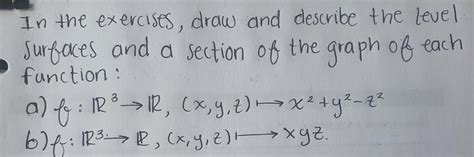 In the exercises, draw and describe the level
surfaces and a section of the graph of each
function:
a) f: ℝ³ → ℝ, (x,y,z) ↦ x²+y²-z²
b) f: ℝ³ → ℝ, (x,y,z) ↦ xyz.